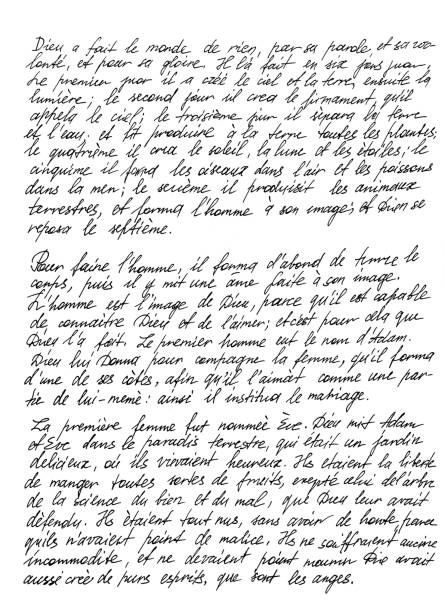 Dieu a fait le monde de rien, par sa parole, et sa vo-
lonté, et pour sa gloire. Il l'a fait en six jours
le premier jour il a créé le ciel et la terre, ensuite la
lumière; le second jour il crea le firmament, qu'il
appela le ciel; le troisième jour il sépara la terre
et l'eau, et fit produire à la terre toutes les plantes;
le quatrième il crea le soleil, la lune et les étoiles; le
cinquième il forma les oiseaux dans l'air et les poissons
dans la mer; le sixième il produisit les animaux
terrestres, et forma l'homme à son image, et Dieu se
reposa le septième.
Pour faire l'homme, il forma d'abord de terre le
corps, puis il y mit une ame faite à son image.
L'homme est l'image de Dieu, parce qu'il est capable
de connaître Dieu et de l'aimer; et c'est pour cela que
Dieu l'a fait. Le premier homme eut le nom d'Adam.
Dieu lui donna pour compagne la femme, qu'il forma
d'une de ses côtes, afin qu'il l'aimât comme une par-
tie de lui-même: ainsi il institua le mariage.
La première femme fut nommée Ève. Dieu mit Adam
et Eve dans le paradis terrestre, qui était un jardin
delicieux, où ils vivaient heureux. Ils etaient la liberte
de manger toutes sortes de fruits, exepté celui del'arbre
de la science du bien et du mal, que Dieu leur avait
défendu. Ils étaient tout nus, sans avoir de honte, parce
qu'ils n'avaient point de malice. Ils ne souffraient aucune
incommodite, et ne devaient point mourir Die avait
aussi crée de purs esprits, que sont les anges.